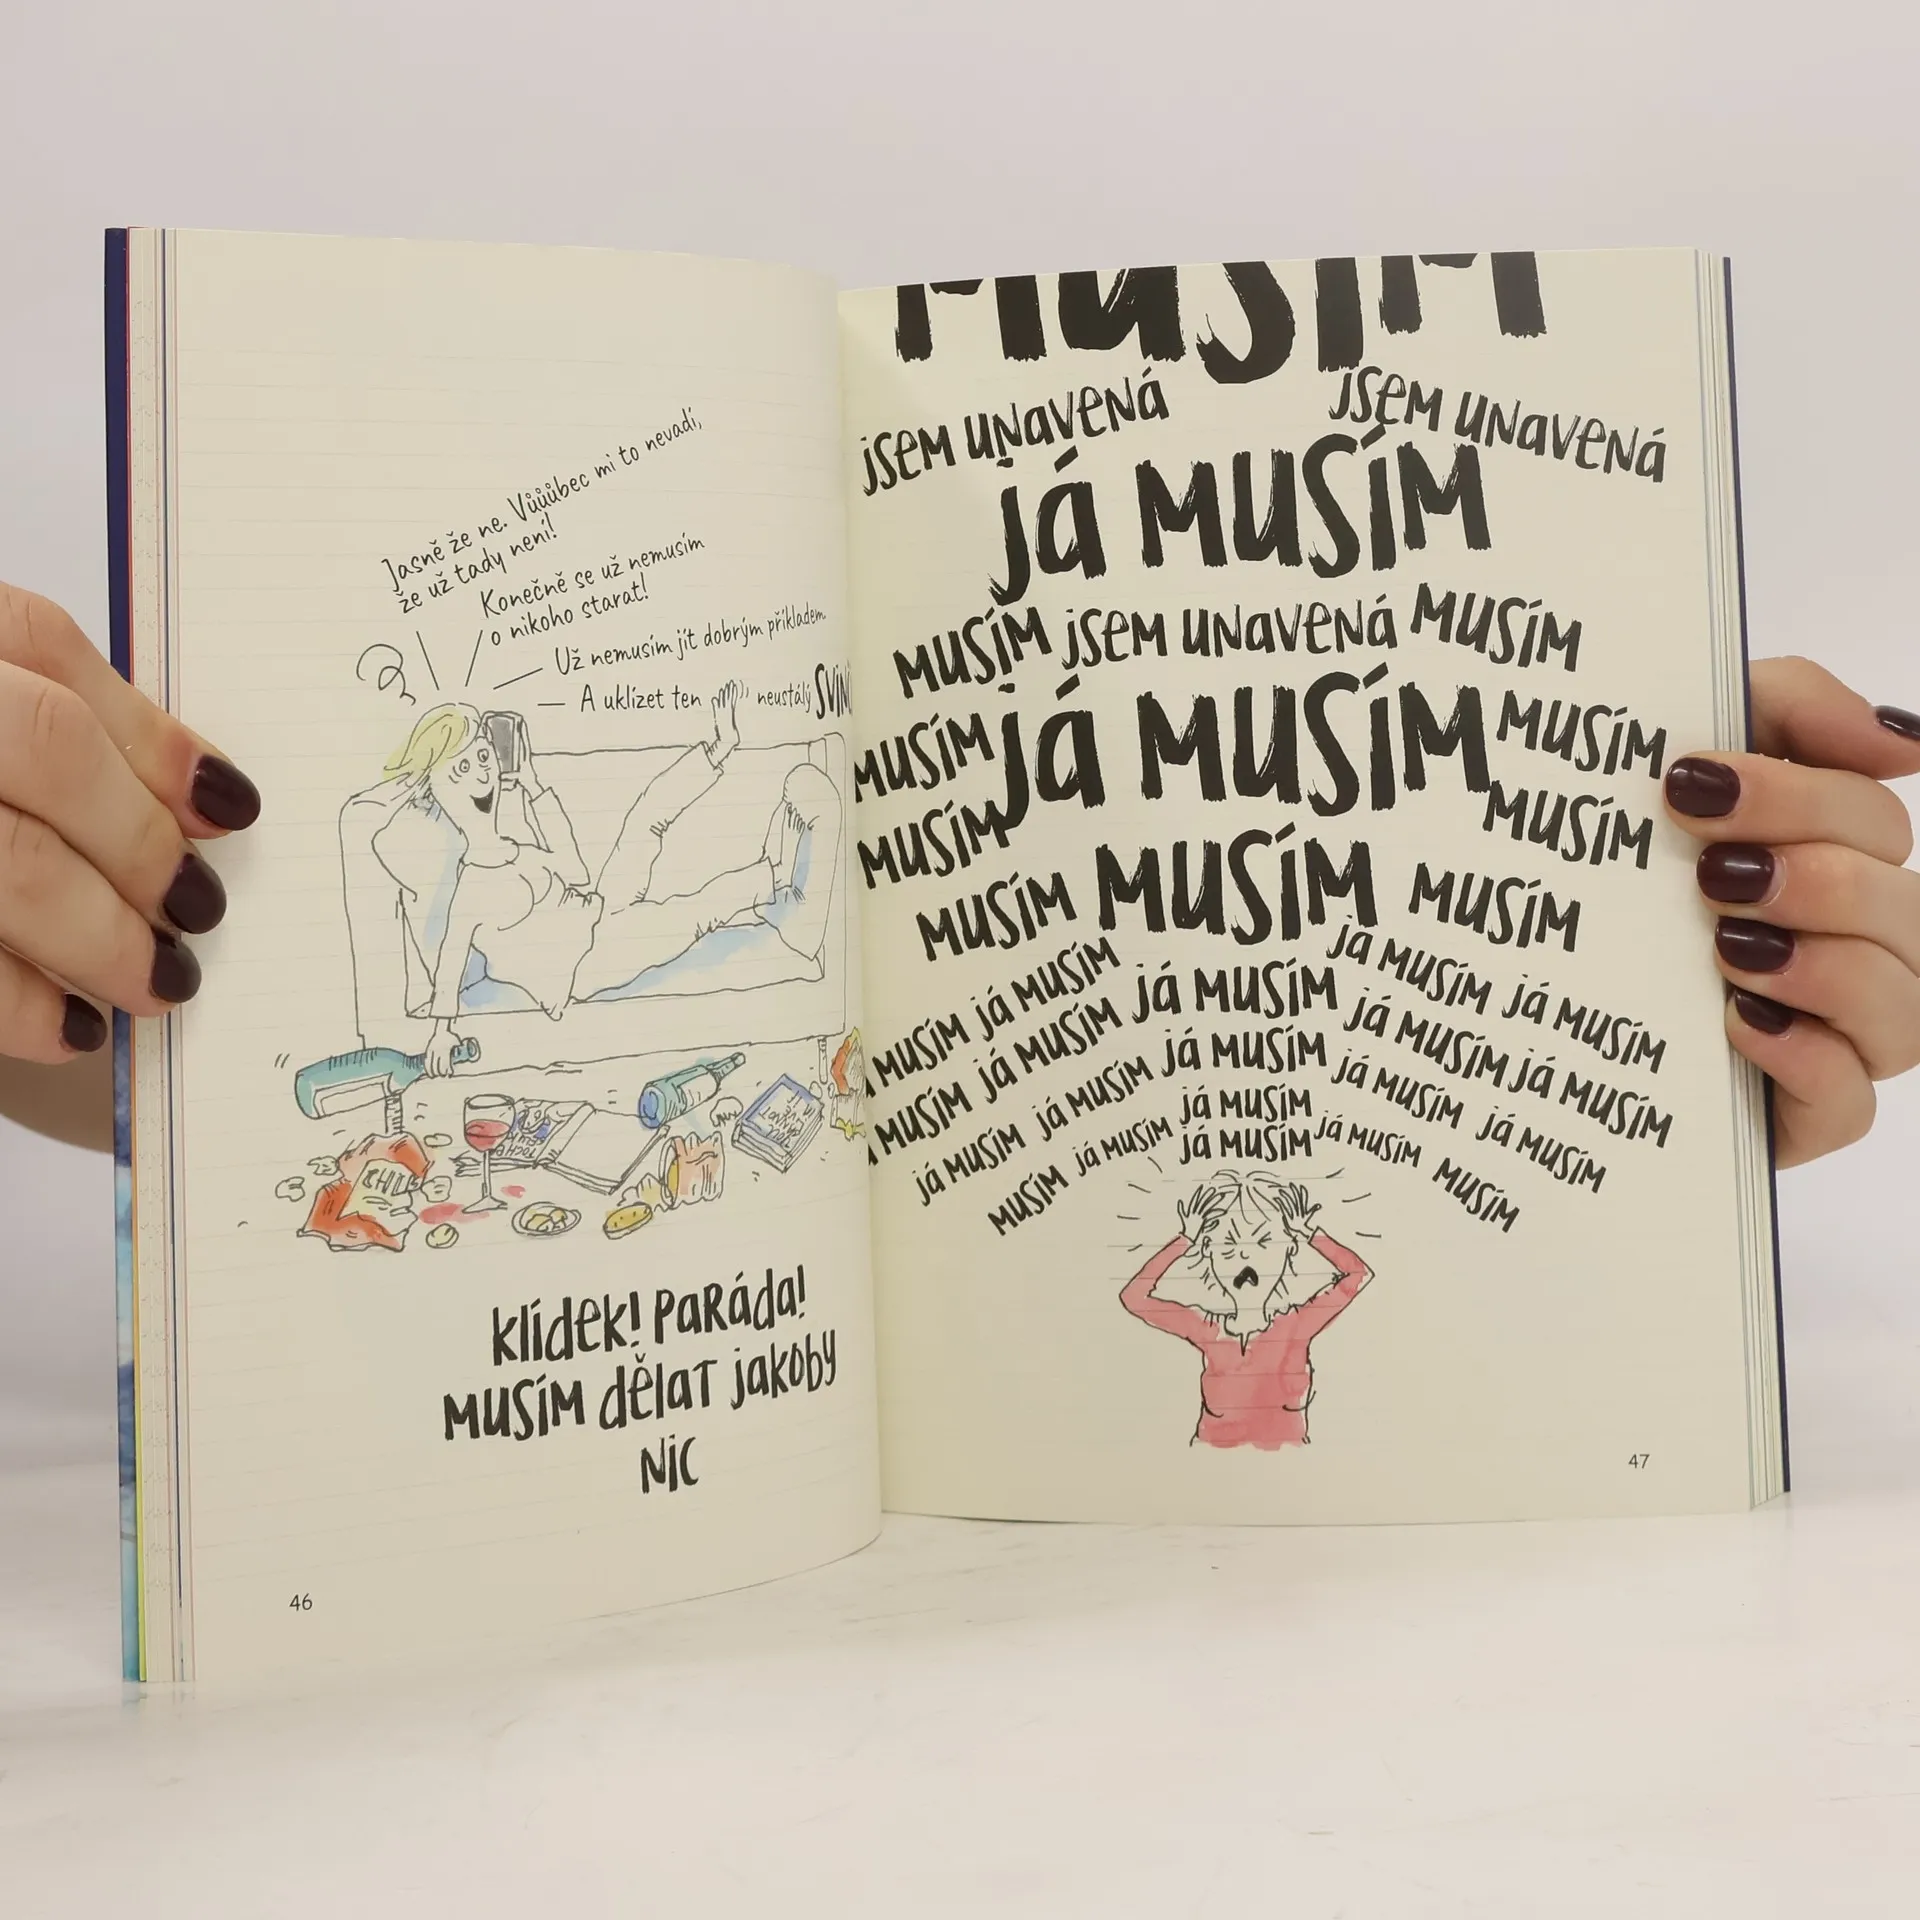 Jasně že ne. Vůůůbec mi to nevadí,
že už tady není!
Konečně se už nemusím
o nikoho starat!
Už nemusím jít dobrým příkladem.
A uklízet ten neustálý
CHILIS
klídek! Paráda!
Musím dělat jakoby
Nic
46
MUSÍM
jsem unavená jsem unavená
já musím
musím jsem unavená musím
musím já musím musím
musím musím
musím musím musím
já musím já musím
musím já musím já musím
já musím já musím já musím
musím já musím já musím
já musím já musím já musím
já musím já musím
já musím
já musím já musím
musím já musím já musím musím
47